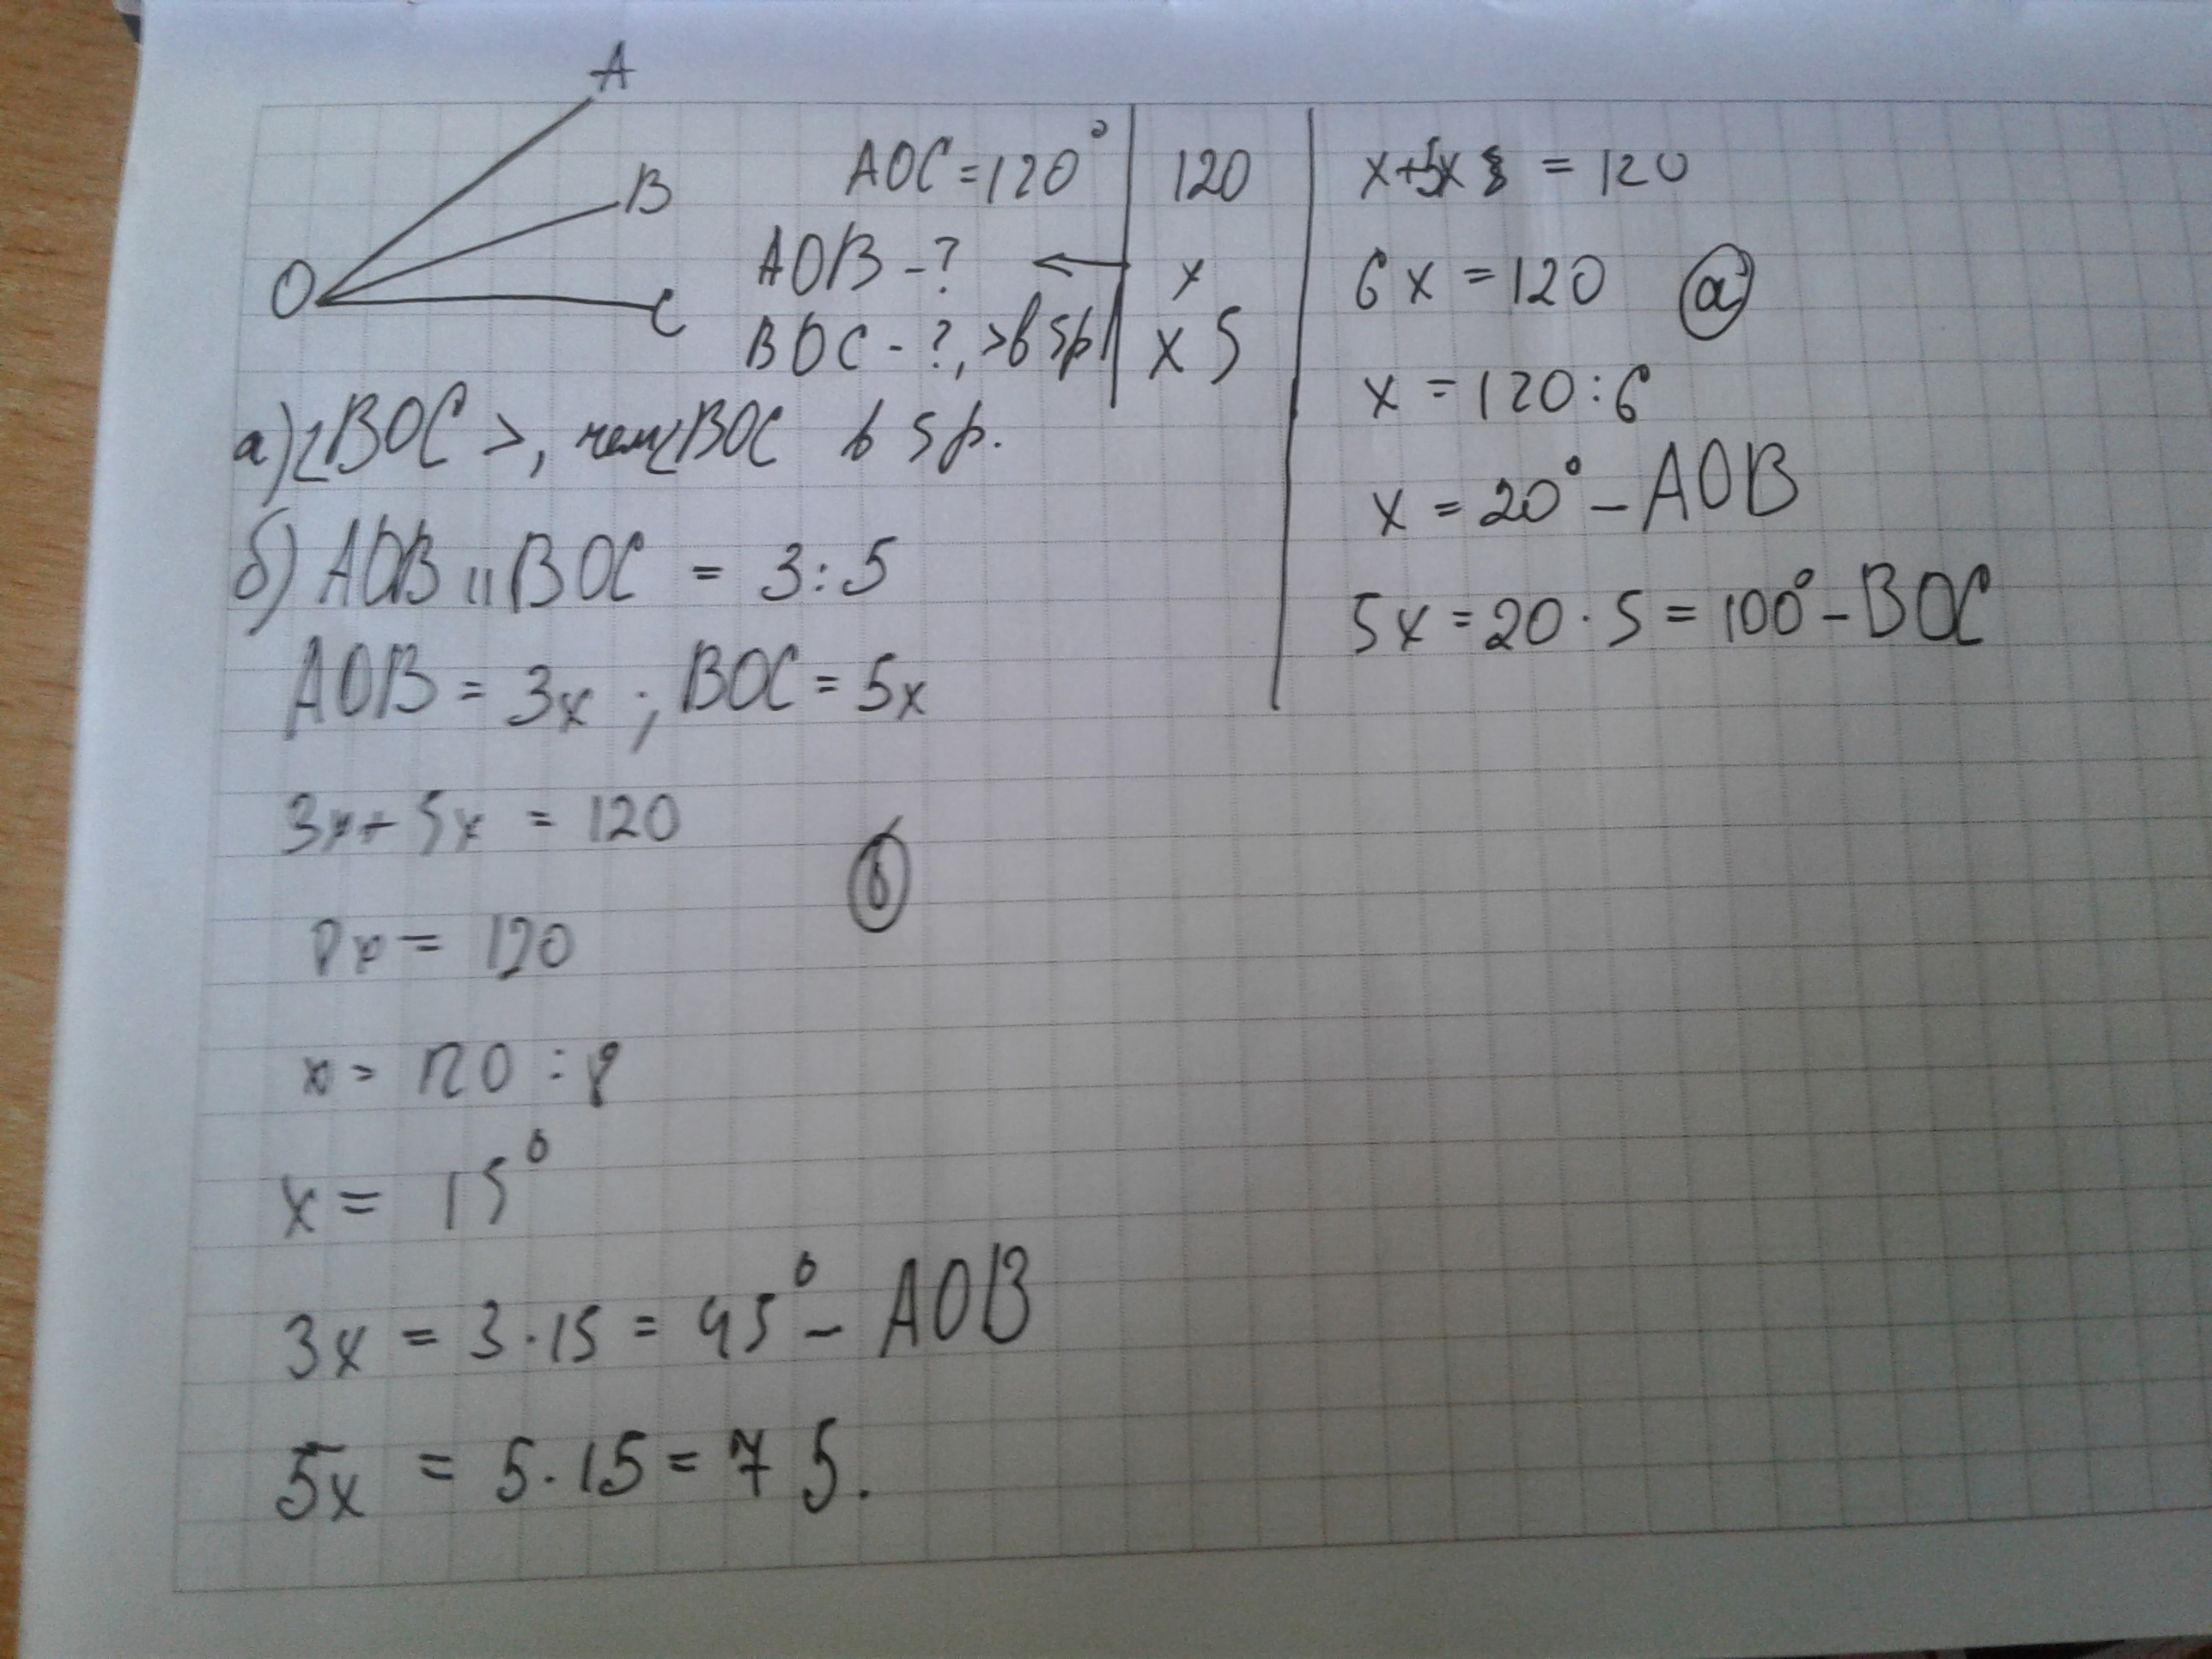 A
B
O
C
AOC = 120° 120
AOB - ? x
BOC - ?, > в 5р x 5
а) ∠BOC >, чем ∠BOC в 5 р.
б) AOB и BOC = 3 : 5
AOB = 3x ; BOC = 5x
3x + 5x = 120
б
8x = 120
x = 120 : 8
x = 15°
3x = 3 · 15 = 45° – AOB
5x = 5 · 15 = 75.
x + 5x = 120
6x = 120 а
x = 120 : 6
x = 20° – AOB
5x = 20 · 5 = 100° – BOC